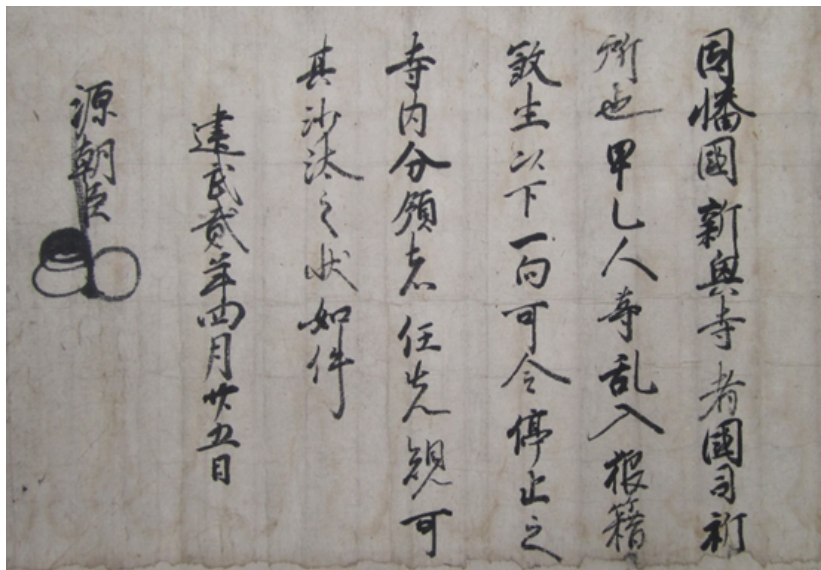 因幡國新興寺者國司祈
所也甲乙人等乱入狼籍
敦生以下一向可令停止之
寺内分領者任先規可
其沙汰之状如件
建武貳年四月廿五日
源朝臣